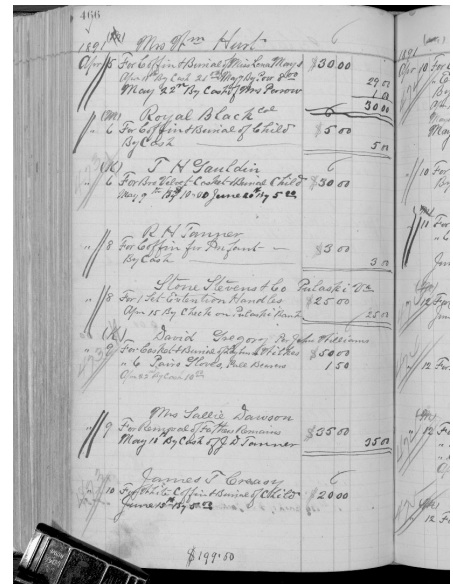 466
1891 Mrs Wm Hurt
Apr 5 For Coffin & Burial of Miss Lena Mays $30.00
May 22nd By Cash of Mrs Parrow 1.00
30.00
Royal Black Col
" 6 For Coffin & Burial of Child $5.00
By Cash 5.00
(K) T H Gauldin
" 6 For Bro Velvet Casket & Burial Child $30.00
May 9th By 10.00 June 20 By 5.00
R H Tanner
" 8 For Coffin for Infant $3.00
By Cash 3.00
Stone Stevens & Co Pulaski Va
" 8 For 1 Set Extention Handles $25.00
Apr 15 By Check on Pulaski Bank 25.00
(K) David Gregory Per John Williams
" 9 For Casket & Burial of Wilkes $50.00
" 6 Pairs Gloves, Pall Bearers 1.50
Mrs Sallie Dawson
" 9 For Removal of Father Remains $35.00
May 10th By Cash of J D Tanner 35.00
James T Creasy
" 10 For White Coffin & Burial of Child $20.00
June 13th By 5.00
$199.50